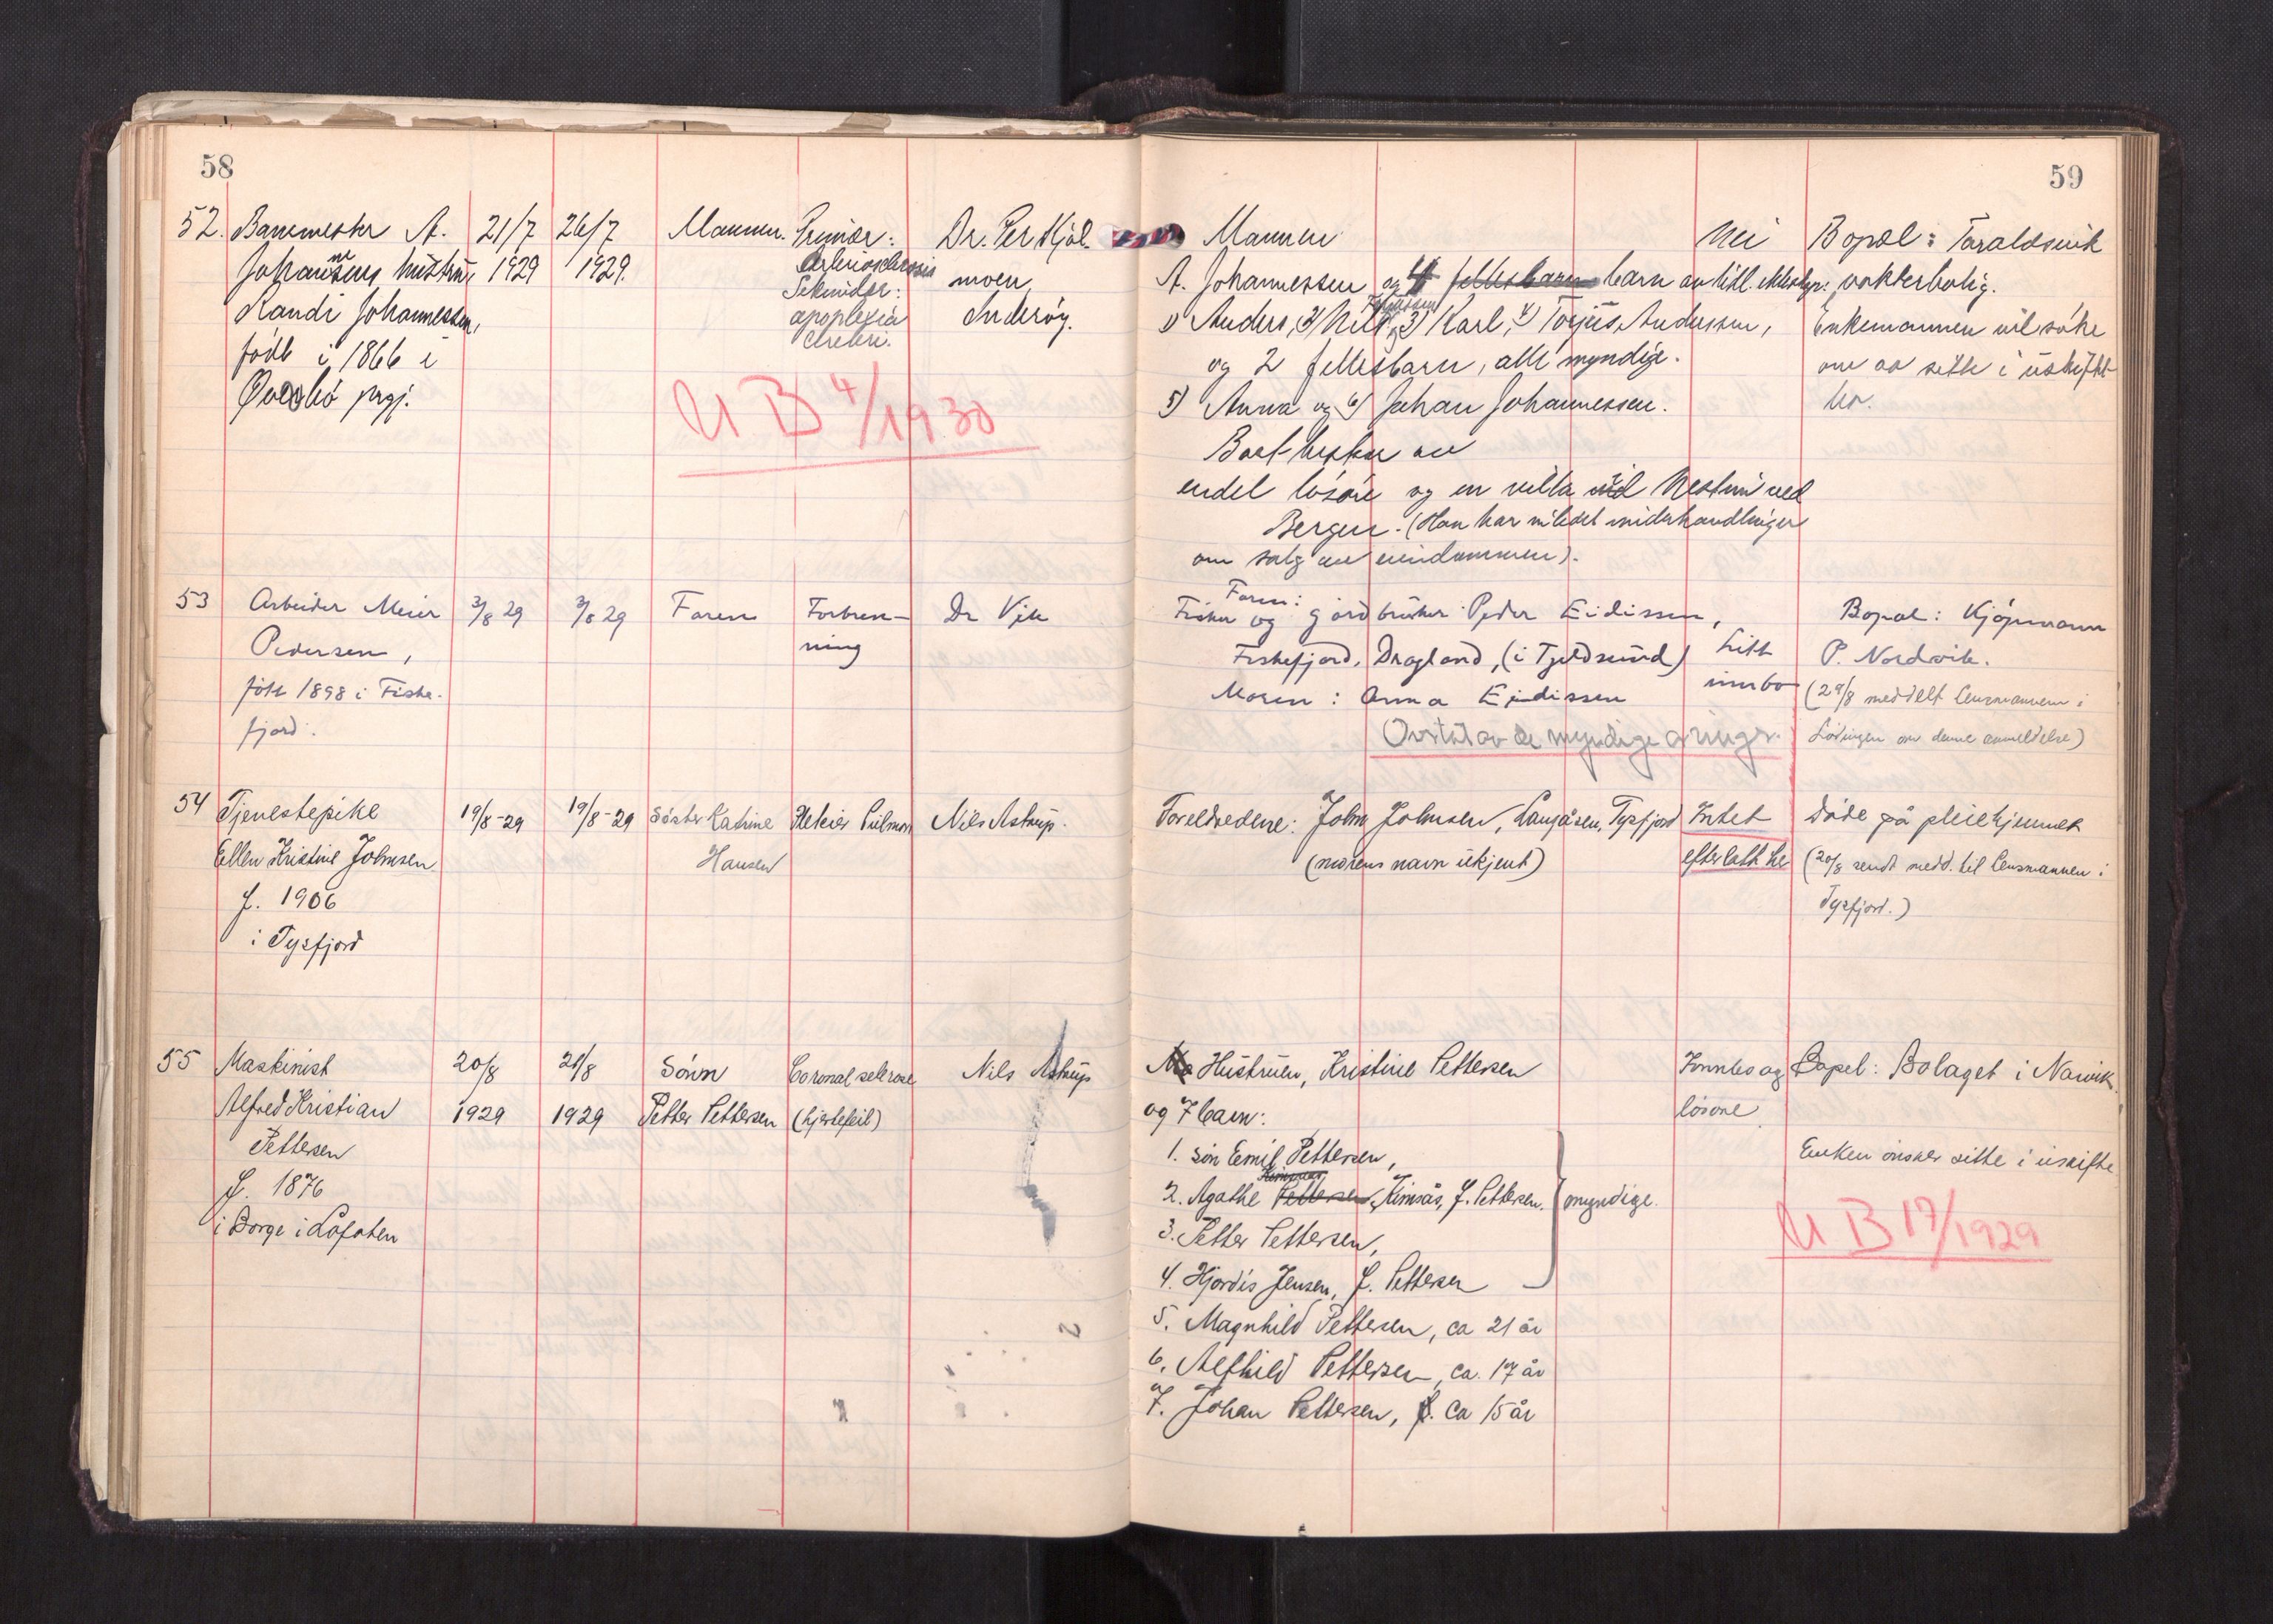 58
52. Banemester A. 21/7 26/7 Mannen. Primær: Dr. Per Kjöl-
Johannessens hustru 1929 1929. Arteriosclerosis moen,
Randi Johannessen, Sekundær: Inderöy.
född i 1866 i apoplexia
prgj. cerebri.
U B 4/1930
53 Arbeider Meier 3/8 29 3/8 29 Faren Forbren- Dr Vik
Pedersen, ning
född 1898 i Fiske-
fjord.
54 Tjenestepike 19/8-29 19/8-29 Söster Katrine Nils Astrup.
Ellen Kristine Johnsen Hansen
f. 1906
i Tysfjord
55 Maskinist 20/8 21/8 Sönn Coronal sclerose Nils Astrup
Alfred Kristian 1929 1929 Petter Pettersen (hjertefeil)
Pettersen
f. 1876
i Borge i Lofoten
59
Mannen Nei Bopæl: Taraldsvik
A. Johannessen og 4 fellesbarn barn av tidl. ektesk.: vokterbolig.
1) Anders, 2) Nils, 3) Karl, 4) Torjus Andersen, Enkemannen vil söke
og 2 fellesbarn, alle myndige. om å sitte i uskiftet
5) Anna og 6) Johan Johannessen. bo.
Boet består av
endel lösöre og en villa ved Nestun ved
Bergen. (Han har innledet underhandlinger
om salg av eiendommen).
Faren:
Fisker og gårdbruker Peder Eidissen, Bopæl: Kjöpmann
Fiskefjord, Dragland, (i Tjeldsund) Litt P. Nordvik.
Moren: Anna Eidissen innbo (29/8 meddelt lensmannen i
Overtatt av de myndige arvinger. Lödingen om denne anmeldelse)
Foreldrene: John Johnsen, Tysfjord Intet Döde på pleiehjemmet
(morens navn ukjent) efterlatt her (20/8 sendt medd. til lensmannen i
Tysfjord.)
Hustruen, Kristine Pettersen Innbo og Bopæl: Bolaget i Narvik.
og 7 barn: lösöre
1. sön Emil Pettersen, Enken önsker sitte i uskifte
2. Agathe Pettersen, Kimsås, f. Pettersen. myndige.
3. Petter Pettersen, U B 17/1929
4. Hjördis Jensen, f. Pettersen
5. Magnhild Pettersen, ca 21 år
6. Alfhild Pettersen, ca. 17 år
7. Johan Pettersen, ca 15 år